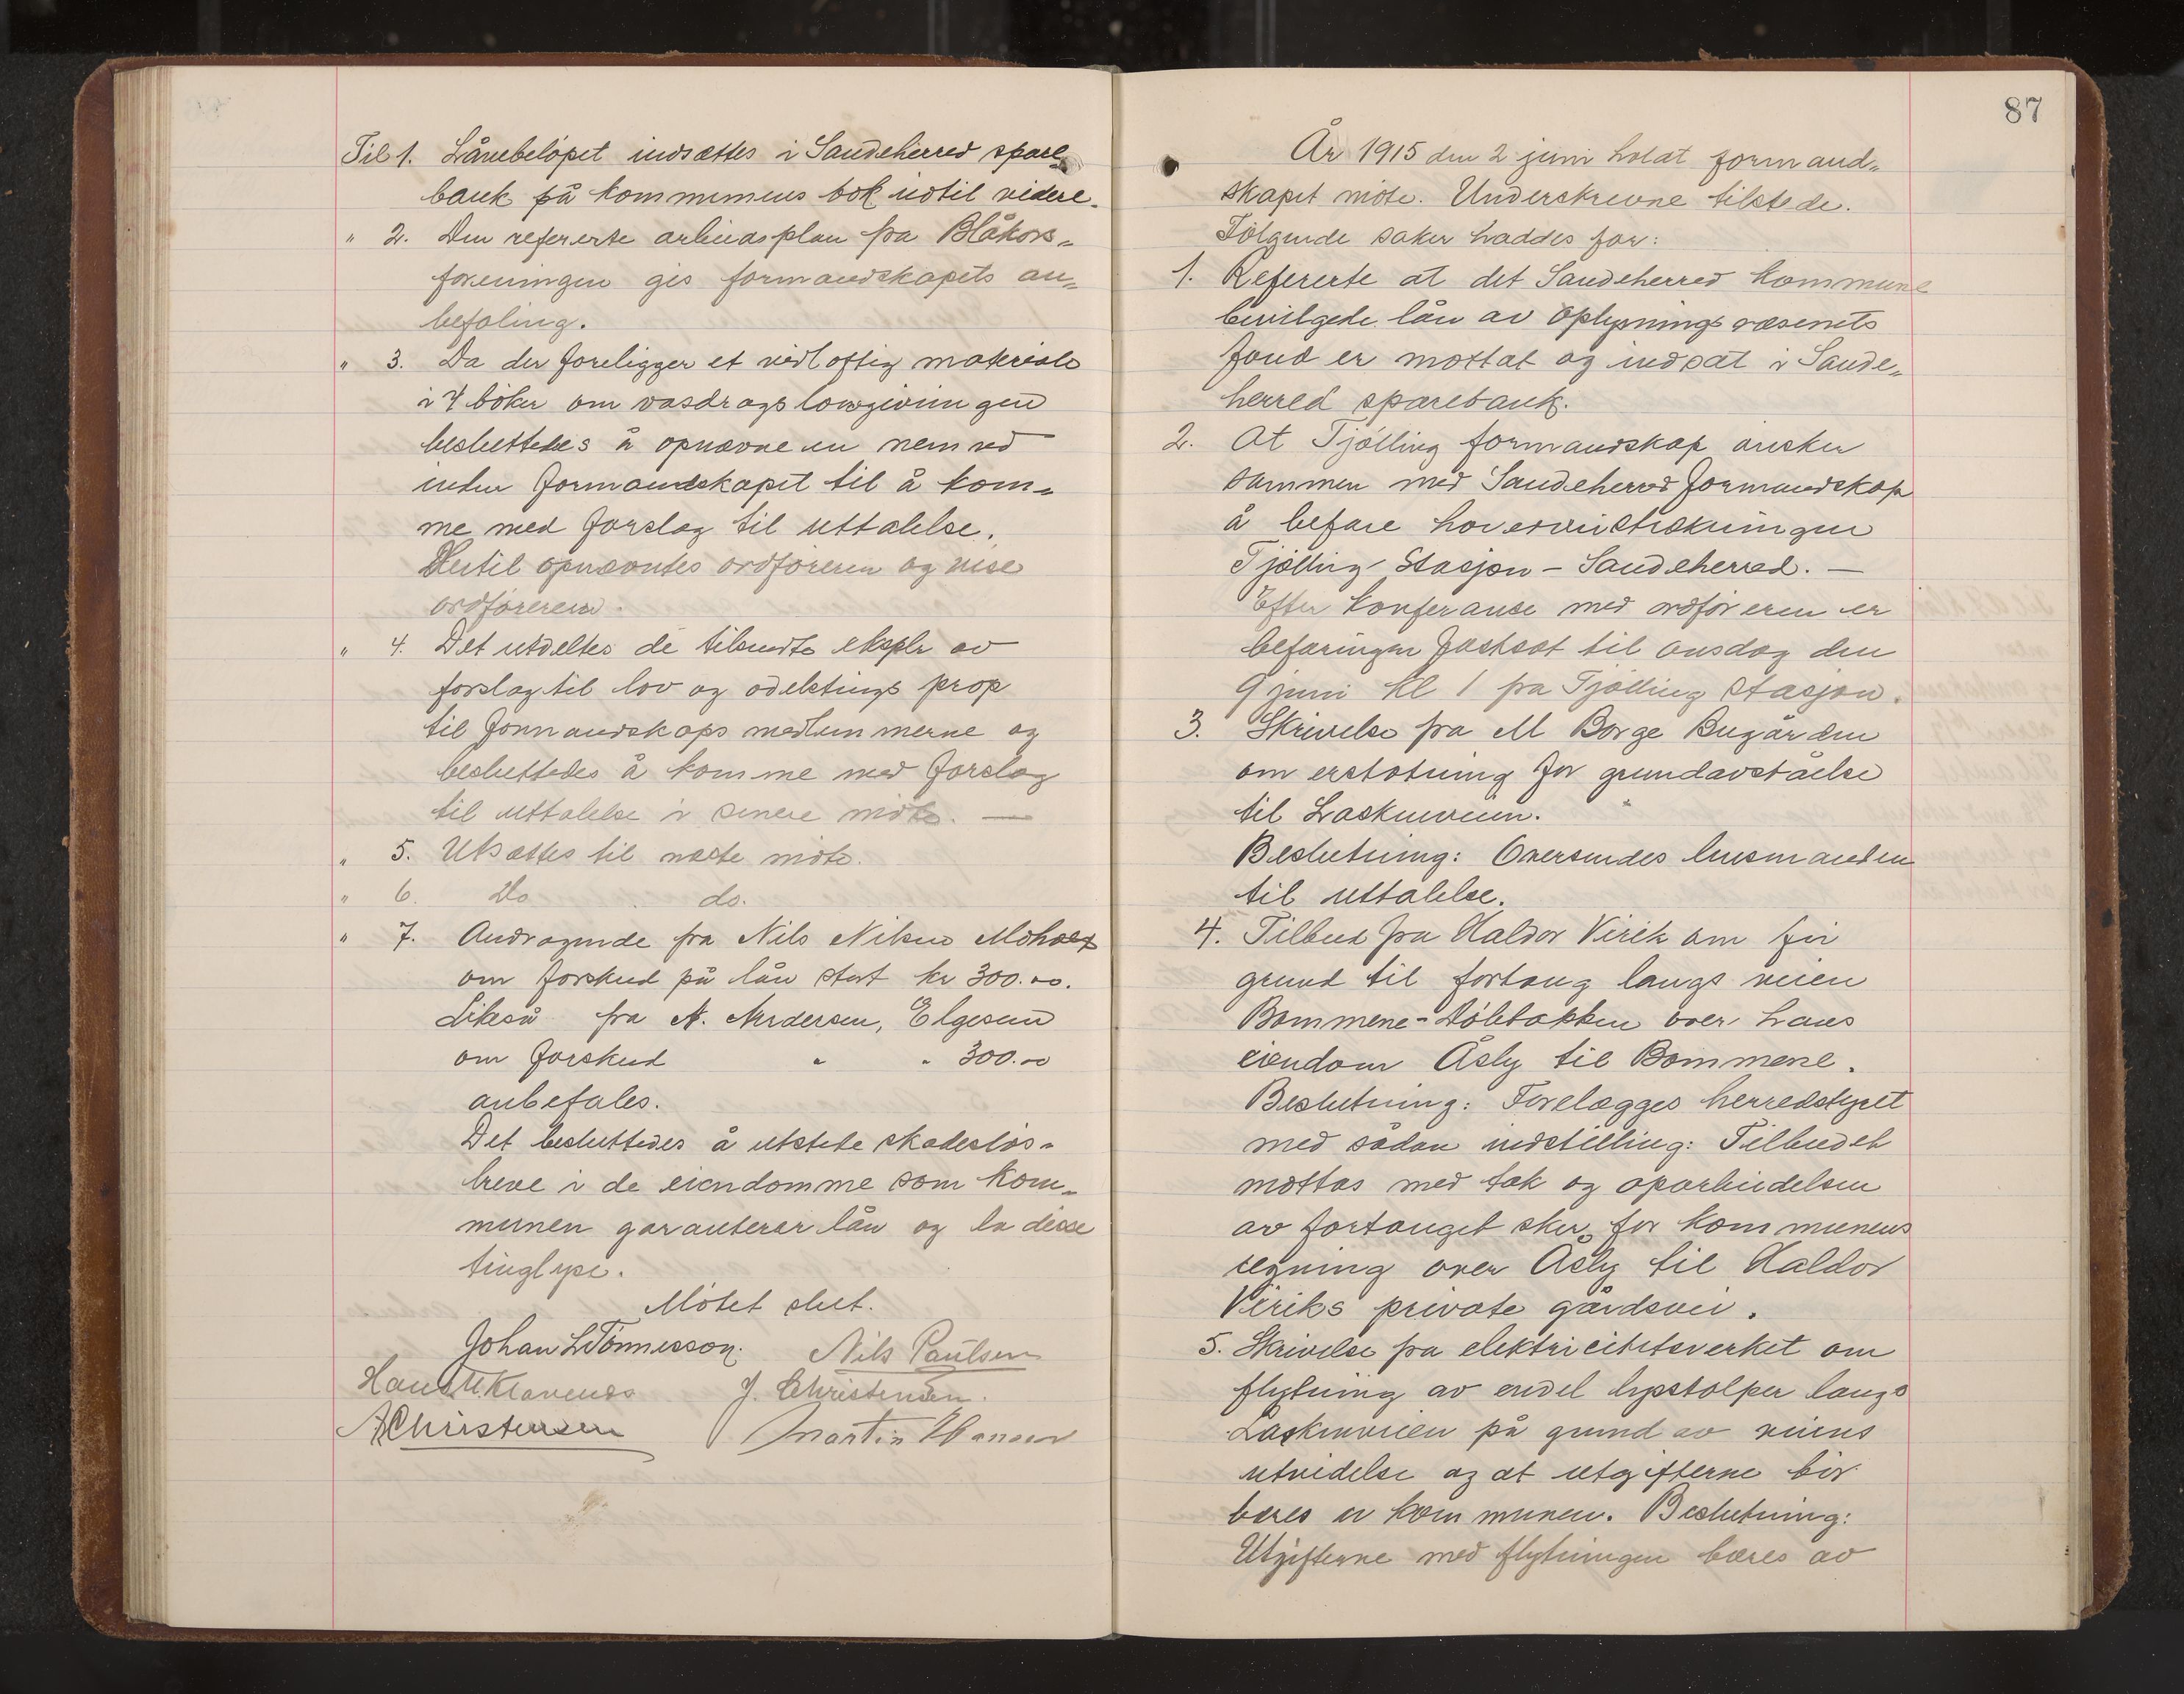 Til 1. Lånebeløpet indsættes i Sandeherred spare-
bank på kommunens bok indtil videre.
" 2. Den refererte arbeidsplan fra Blåkors-
foreningen gis formandskapets an-
befaling.
" 3. Da der foreligger et vidløftig materiale
i 7 bøker om vasdragslovgivningen
besluttedes å opnævne en nemnd
inden formandskapet til å kom-
me med forslag til uttalelse.
Hertil opnævntes ordføreren og vise
ordføreren.
" 4. Det utdeltes de tilsendte ekspl av
forslag til lov og odelstings prop
til formandskaps medlemmerne og
besluttedes å komme med forslag
til uttalelse i senere møte. —
" 5. Utsættes til næste møte.
" 6. Do do.
" 7. Andragende fra Nils Nilsen Moholt
om forskud på lån stort kr 300.00.
Likeså fra A. Andersen, Elgesem
om forskud " " 300.00
anbefales.
Det besluttedes å utstede skadesløs-
breve i de eiendomme som kom-
munen garanterer lån og la disse
tinglyse.
Møtet slut.
Johan L Tönnesson. Nils Paulsen
Hans M. Klavenes J. Christensen.
A Christensen Martin Hansen
87
År 1915 den 2 juni holdt formand-
skapet møte. Underskrevne tilstede.
Følgende saker haddes for:
1. Refererte at det Sandeherred kommune
bevilgede lån av Oplysningsvæsenets
fond er mottat og indsat i Sande-
herred sparebank.
2. At Tjølling formandskap ønsker
sammen med Sandeherred formandskap
å befare hovedveistrækningen
Tjølling Stasjon – Sandeherred. —
Efter konferanse med ordføreren er
befaringen fastsat til onsdag den
9 juni kl 1 fra Tjølling stasjon.
3. Skrivelse fra M Borge Bugården
om erstatning for grundavståelse
til Laskenveien.
Beslutning: Oversendes lensmanden
til uttalelse.
4. Tilbud fra Haldor Virik om fri
grund til fortaug langs veien
Bommene – Dølebakken over hans
eiendom Åsly til Bommene.
Beslutning: Forelægges herredstyret
med sådan indstilling: Tilbudet
mottas med tak og oparbeidelsen
av fortauget sker for kommunens
regning over Åsly til Haldor
Viriks private gårdsvei.
5. Skrivelse fra elektricitetsverket om
flytning av endel lysstolper langs
Laskenveien på grund av veiens
utvidelse og at utgifterne bør
bæres av kommunen. Beslutning:
Utgifterne med flytningen bæres av